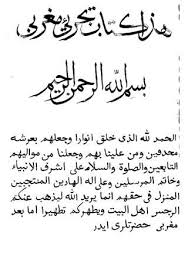 هذا كتاب مغربى
بسم الله الرحمن الرحيم
الحمد لله الذى خلق انوارا وجعلهم بعرشه
محدقين ومن علينا بهم وجعلنا من مواليهم
التابعين والصلوة والسلام على اشرف الانبياء
وخاتم المرسلين وعلى اله الهادين المنتجبين
المنزل فى حقهم انما يريد الله ليذهب عنكم
الرجس اهل البيت ويطهركم تطهيرا اما بعد
مغربى حضرتلرى ايدر